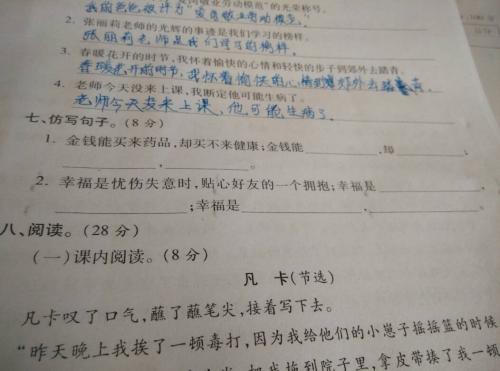 我的爸爸被评为"爱岗敬业劳动模范"。
2. 张丽莉老师的光辉的事迹是我们学习的榜样。
张丽莉老师是我们学习的榜样。
3. 春暖花开的时节,我怀着愉快的心情和轻快的步子到郊外去踏青。
春暖花开的时节,我怀着愉快的心情到郊外去踏青。
4. 老师今天没来上课,我断定他可能生病了。
老师今天没来上课,他可能生病了。
七、仿写句子。(8 分)
1. 金钱能买来药品,却买不来健康;金钱能 ,却
, 。
2. 幸福是忧伤失意时,贴心好友的一个拥抱;幸福是
;幸福是 。
八、阅读。(28 分)
(一)课内阅读。(8 分)
凡 卡(节选)
凡卡叹了口气,蘸了蘸笔尖,接着写下去。
"昨天晚上我挨了一顿毒打,因为我给他们的小崽子摇摇篮的时候
把我拖到院子里,拿皮带揍了我一顿